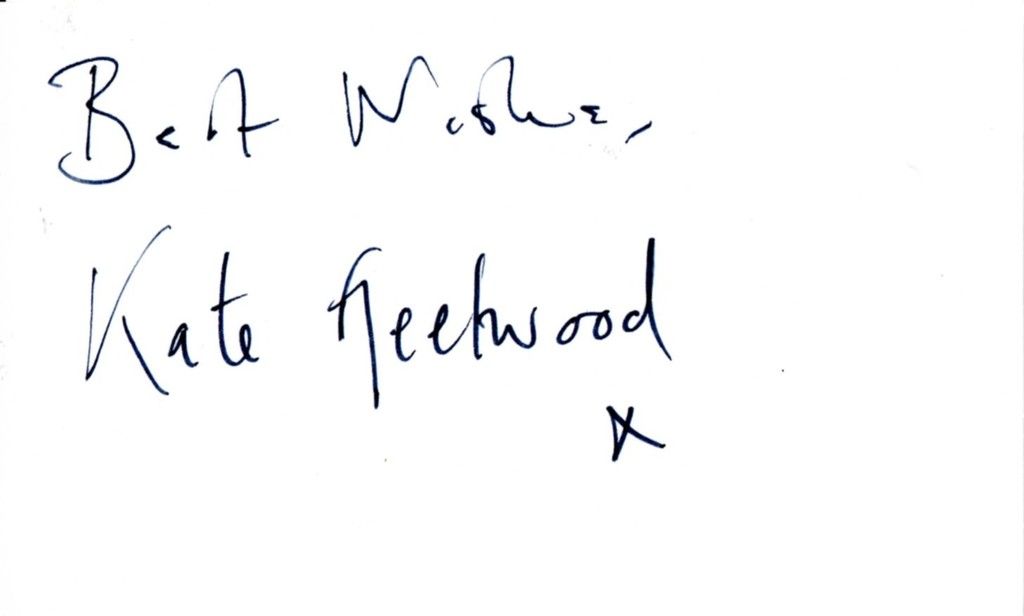 Best Wishes,
Kate Fleetwood
x